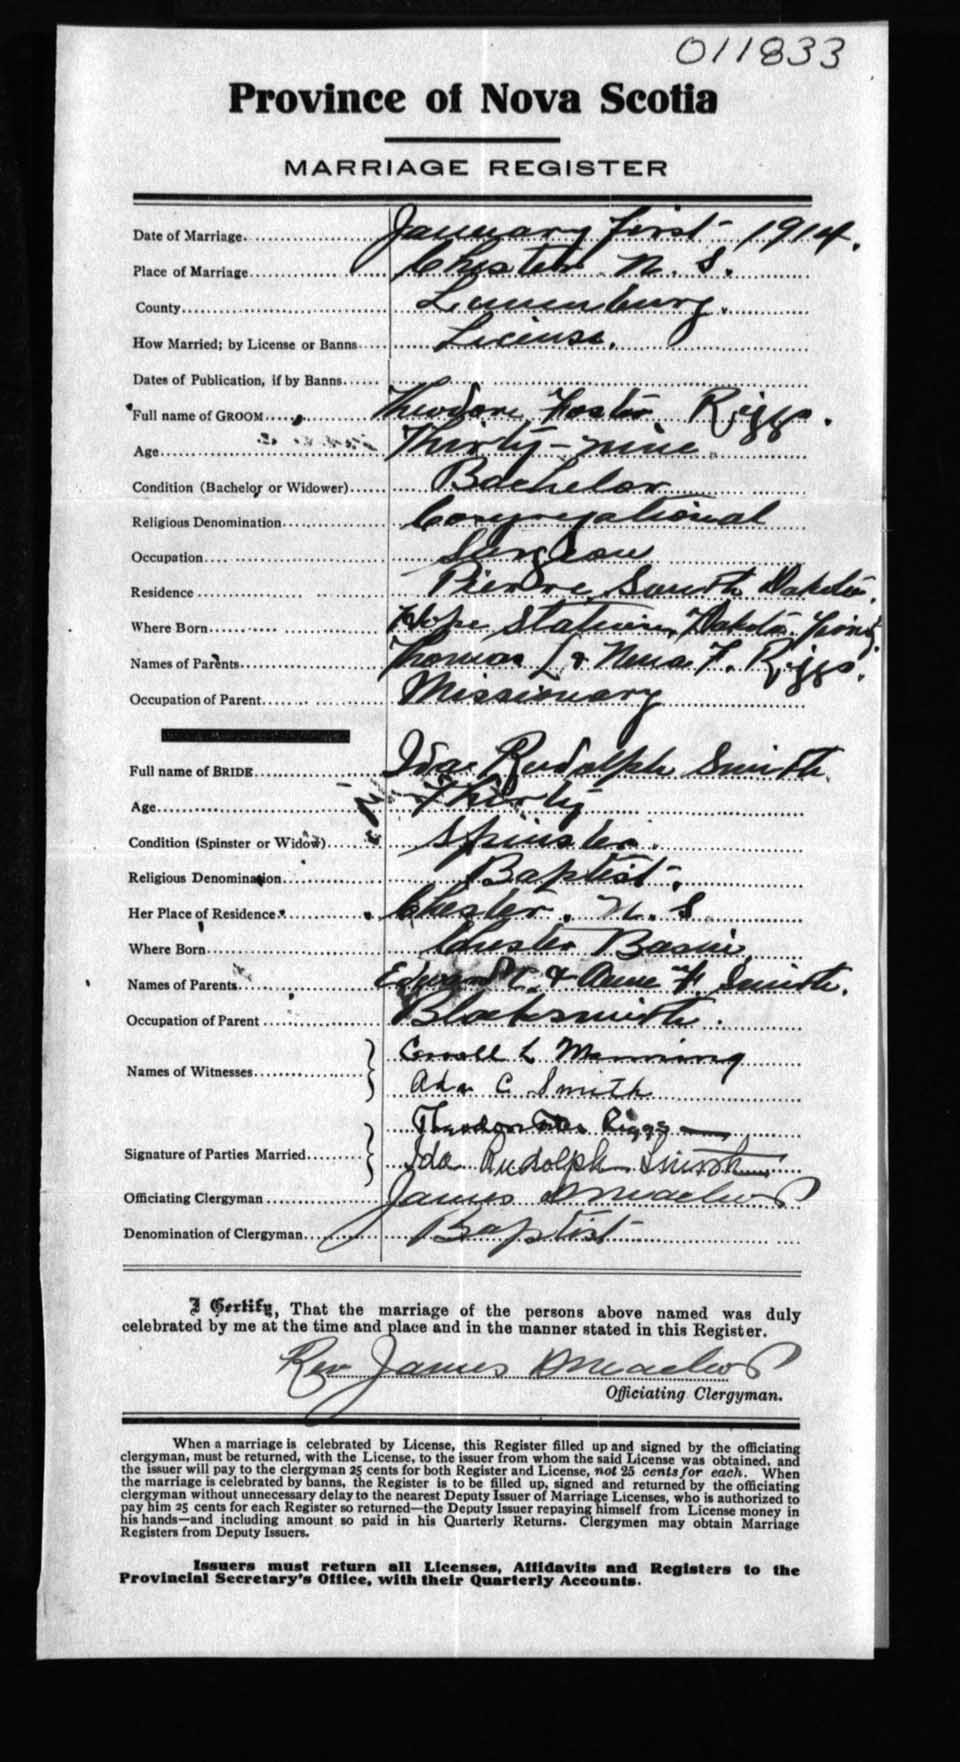 011833
Province of Nova Scotia
MARRIAGE REGISTER
Date of Marriage. January first 1914.
Place of Marriage Chester N. S.
County Lunenburg.
How Married; by License or Banns License.
Dates of Publication, if by Banns
Full name of GROOM Theodore Foster Riggs.
Age Thirty-nine
Condition (Bachelor or Widower) Bachelor
Religious Denomination Congregational
Occupation Surgeon
Residence Pierre, South Dakota.
Where Born Hope Station, Dakota
Names of Parents Thomas L & Nina F. Riggs.
Occupation of Parent Missionary
Full name of BRIDE Ida Rudolph Smith.
Age Thirty
Condition (Spinster or Widow) Spinster.
Religious Denomination Baptist.
Her Place of Residence Chester. N. S
Where Born Chester Basin
Names of Parents Edward & F. Smith.
Occupation of Parent Blacksmith.
Names of Witnesses L Manning
Ada C Smith
Theodore Foster Riggs
Signature of Parties Married Ida Rudolph Smith
Officiating Clergyman James
Denomination of Clergyman Baptist
I Certify, That the marriage of the persons above named was duly
celebrated by me at the time and place and in the manner stated in this Register.
Rev James
Officiating Clergyman.
When a marriage is celebrated by License, this Register filled up and signed by the officiating
clergyman, must be returned, with the License, to the issuer from whom the said License was obtained, and
the issuer will pay to the clergyman 25 cents for both Register and License, not 25 cents for each. When
the marriage is celebrated by banns, the Register is to be filled up, signed and returned by the officiating
clergyman without unnecessary delay to the nearest Deputy Issuer of Marriage Licenses, who is authorized to
pay him 25 cents for each Register so returned—the Deputy Issuer repaying himself from License money in
his hands—and including amount so paid in his Quarterly Returns. Clergymen may obtain Marriage
Registers from Deputy Issuers.
Issuers must return all Licenses, Affidavits and Registers to the
Provincial Secretary's Office, with their Quarterly Accounts.